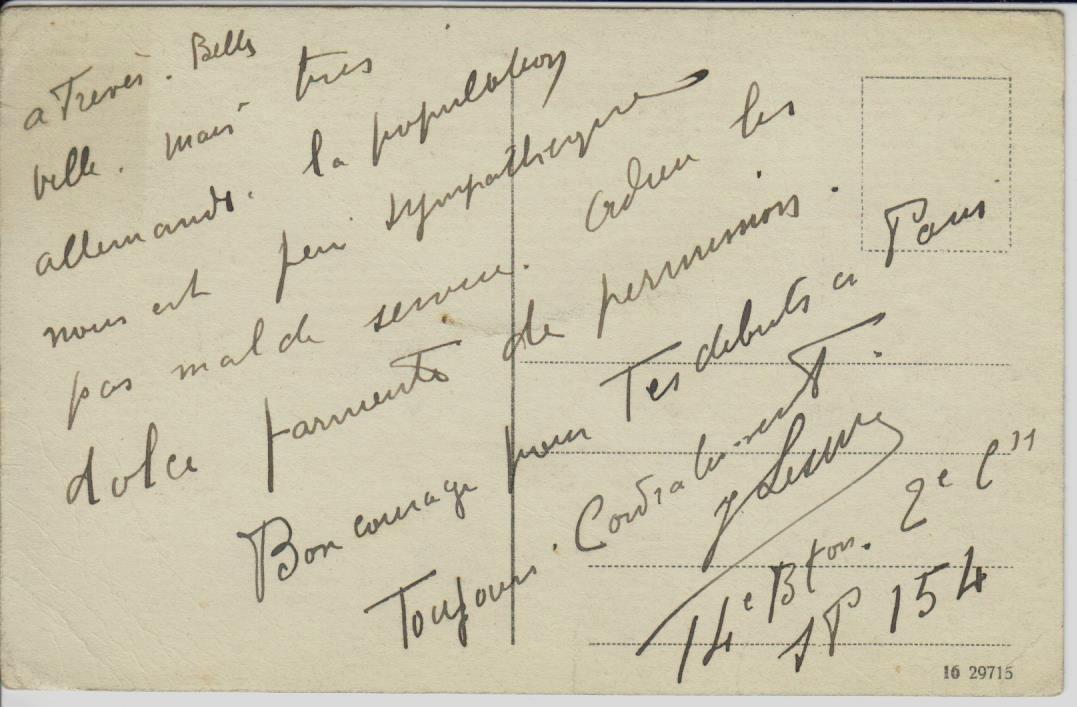 a Treves. Belle
ville. mais très
allemande. la population
nous est peu sympathique
pas mal de service. adieu les
dolce farniente de permissions.
Bon courage pour Tes debuts a Paris
Toujours. Cordialement T.
14e Bton. 2e Cie
SP 154
16 29715